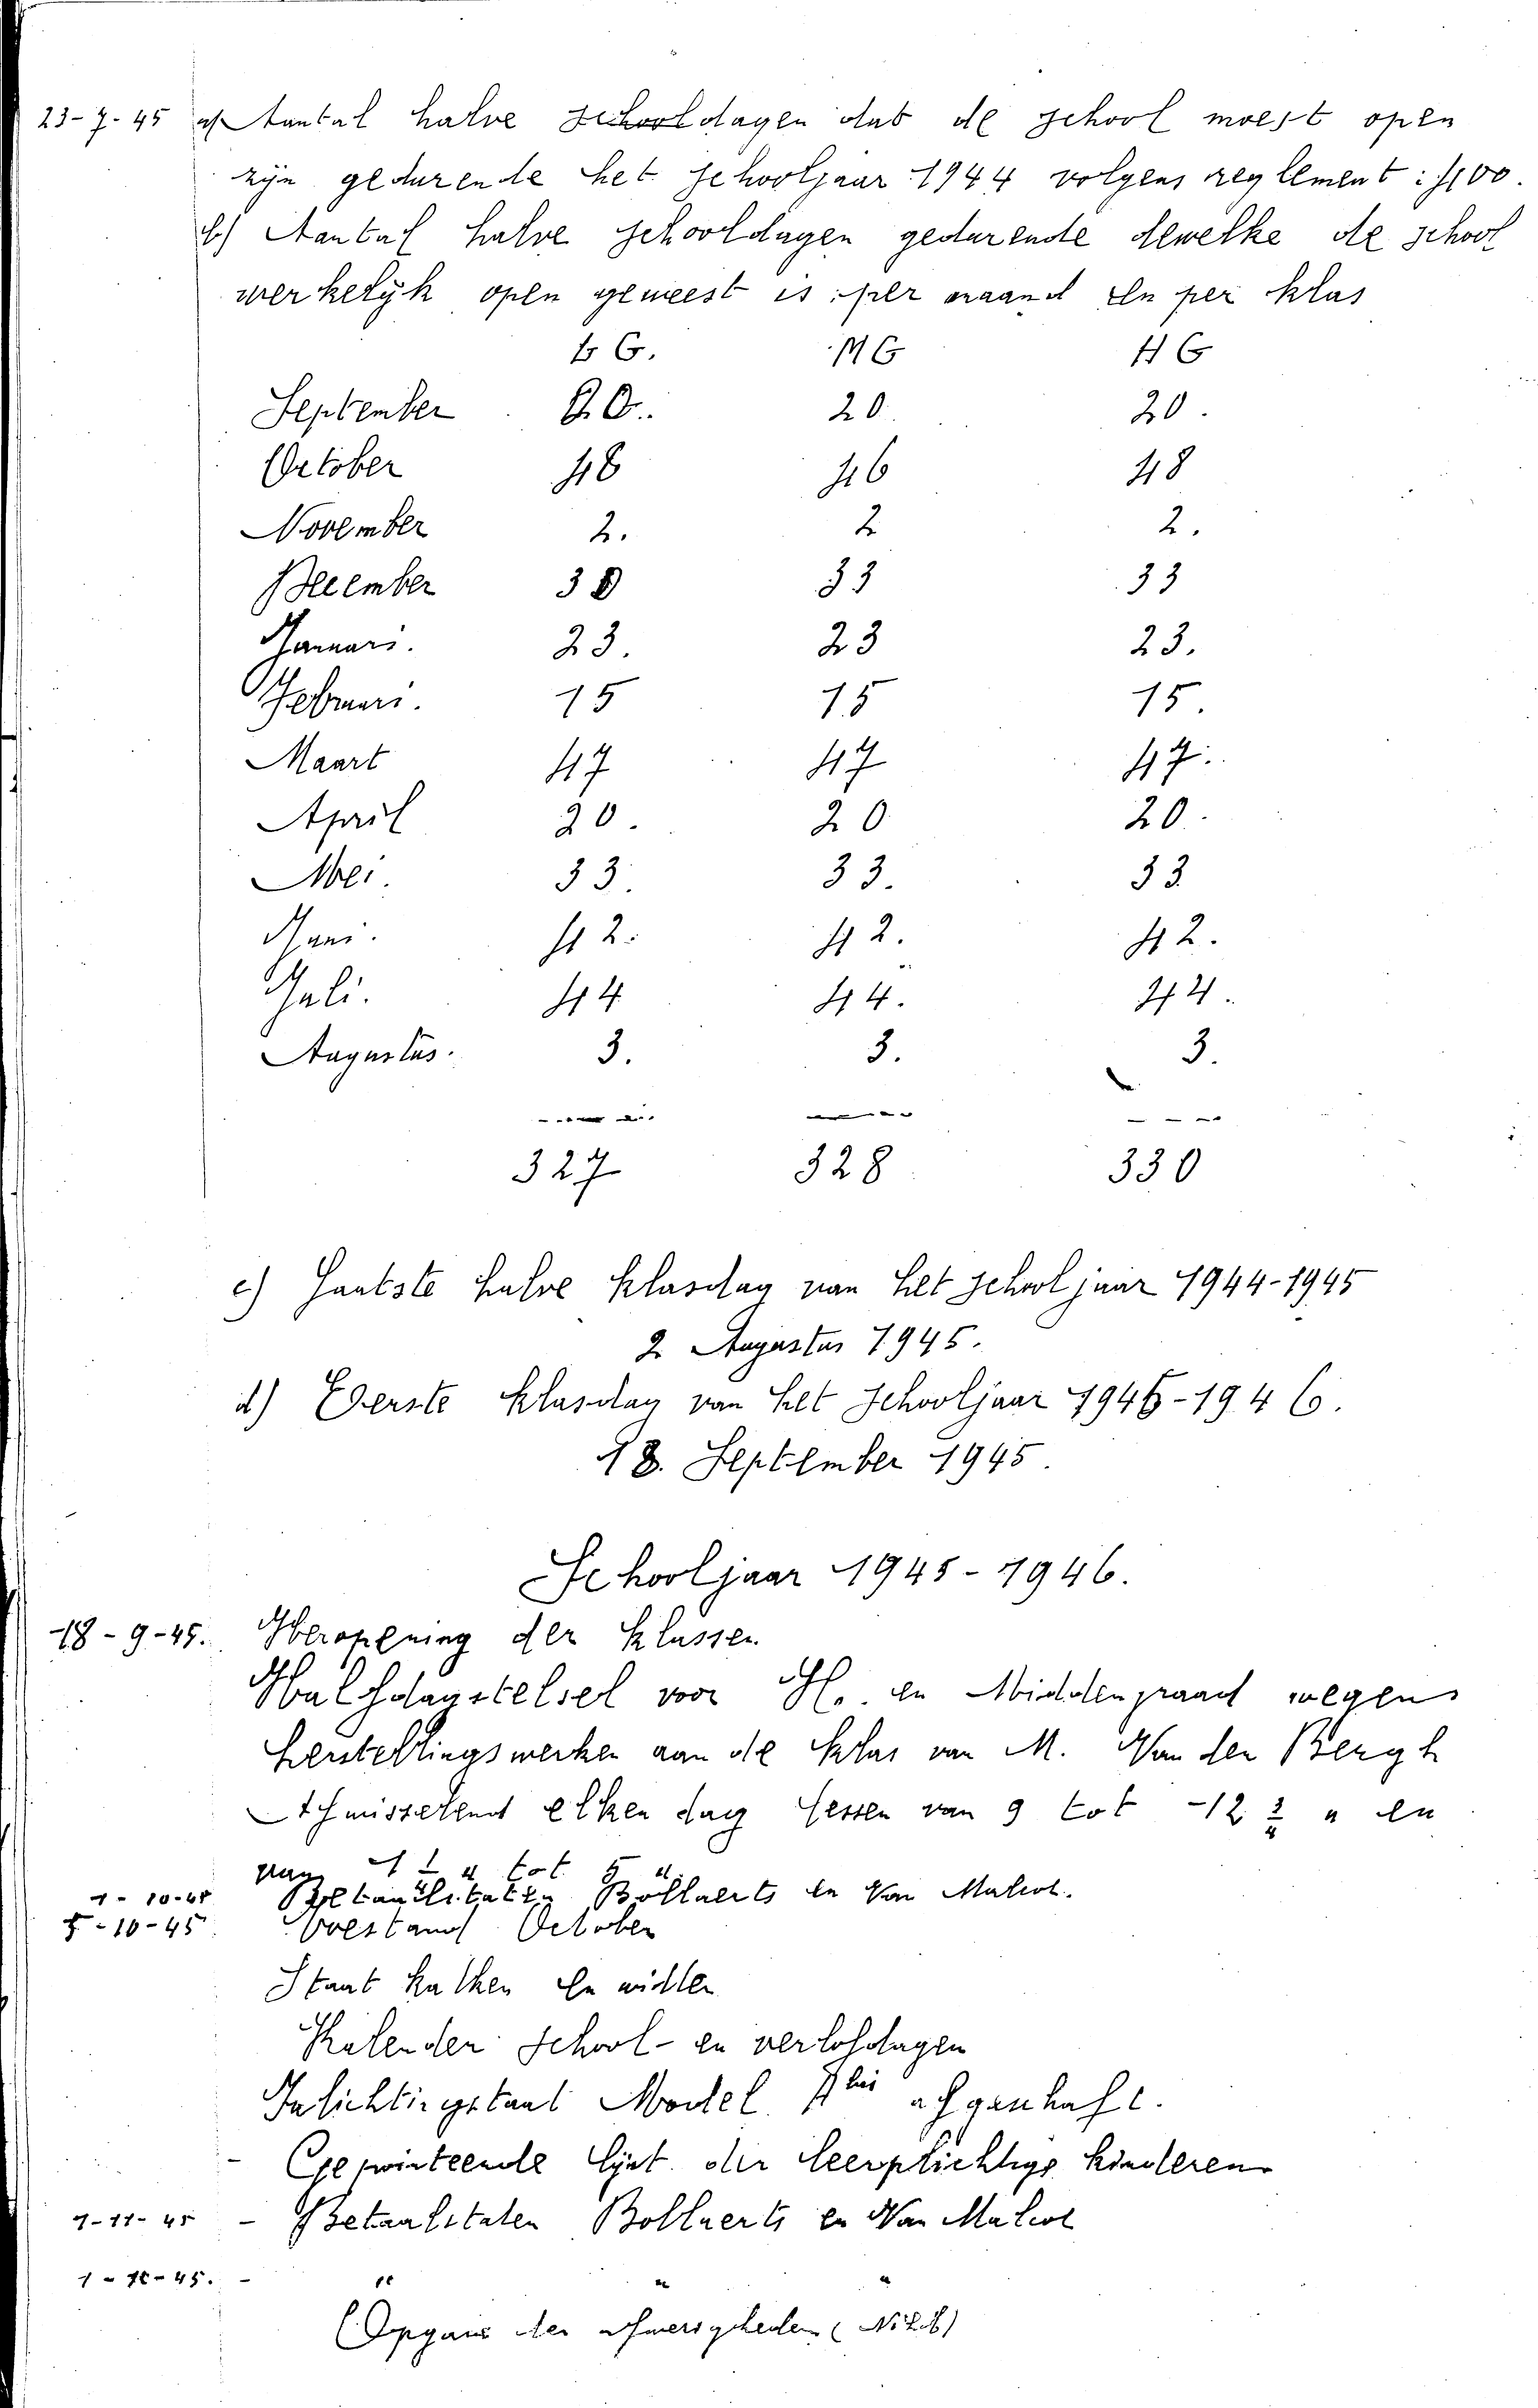 23-7-45 a) Aantal halve schooldagen dat de school moest open
zijn gedurende het schooljaar 1944 volgens reglement: 400.
b) Aantal halve schooldagen gedurende dewelke de school
werkelijk open geweest is: per maand en per klas
LG. MG HG
September 20. 20 20.
October 48 46 48
November 2. 2 2.
December 30 33 33
Januari. 23. 23 23.
Februari. 15 15 15.
Maart 47 47 47.
April 20. 20 20.
Mei. 33. 33. 33
Juni. 42. 42. 42.
Juli. 44 44. 44.
Augustus. 3. 3. 3.
327 328 330
c) Laatste halve klasdag van het schooljaar 1944-1945
2 Augustus 1945.
d) Eerste klasdag van het Schooljaar 1945-1946.
18. September 1945.
Schooljaar 1945-1946.
18-9-45. Heropening der klassen
Halfdagstelsel voor H. en Middengraad wegens
herstellingswerken aan de klas van M. Van den Bergh
Afwisselend elken dag lessen van 9 tot 12 u en
van 1 u tot 5 u.
1-10-45 Betaalstaten Bollaerts en Van
5-10-45 Toestand October
Staat kolken en
Kalender School- en verlofdagen
Inlichtingstaat Model bis
- Gepointeerde lijst der leerplichtige kinderen
1-11-45 - Betaalstaten Bollaerts en Van
1-12-45. - " " "
(Opgave der afwezigheden